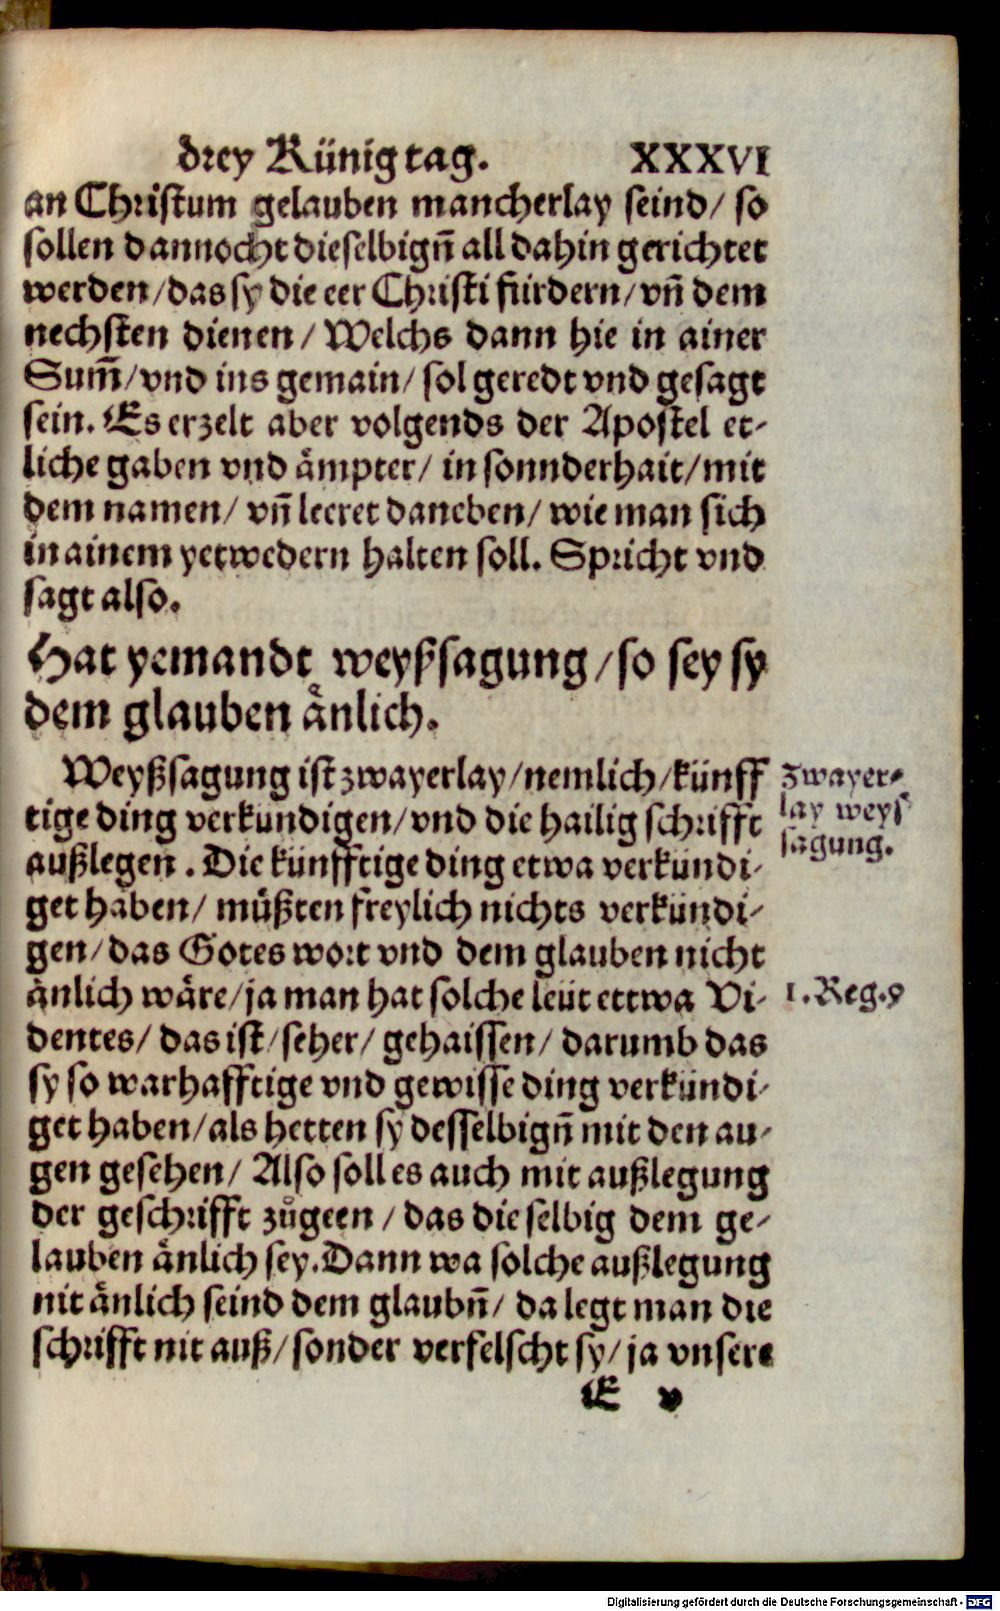 drey Künig tag. XXXVI
an Christum gelauben mancherlay seind/ so
sollen dannocht dieselbigñ all dahin gerichtet
werden/das sy die eer Christi fürdern/vñ dem
nechsten dienen/ Welchs dann hie in ainer
Sum̃/vnd ins gemain/ sol geredt vnd gesagt
sein. Es erzelt aber volgends der Apostel et-
liche gaben vnd ämpter/ in sonnderhait/mit
dem namen/ vñ leeret daneben/ wie man sich
in ainem yetwedern halten soll. Spricht vnd
sagt also.
Hat yemandt weyßsagung/so sey sy
dem glauben änlich.
Weyßsagung ist zwayerlay/nemlich/künff
tige ding verkundigen/vnd die hailig schrifft
außlegen. Die künfftige ding etwa verkündi-
get haben/ müßten freylich nichts verkündi-
gen/das Gotes wort vnd dem glauben nicht
änlich wäre/ja man hat solche leüt ettwa Vi-
dentes/ das ist/seher/ gehaissen/ darumb das
sy so warhafftige vnd gewisse ding verkündi-
get haben/als hetten sy desselbigñ mit den au-
gen gesehen/ Also soll es auch mit außlegung
der geschrifft zůgeen/das die selbig dem ge-
lauben änlich sey. Dann wa solche außlegung
nit änlich seind dem glaubñ/ da legt man die
schrifft nit auß/sonder verfelscht sy/ja vnsere
E v
zwayer-
lay weyß
sagung.
1. Reg.9
Digitalisierung gefördert durch die Deutsche Forschungsgemeinschaft - DFG